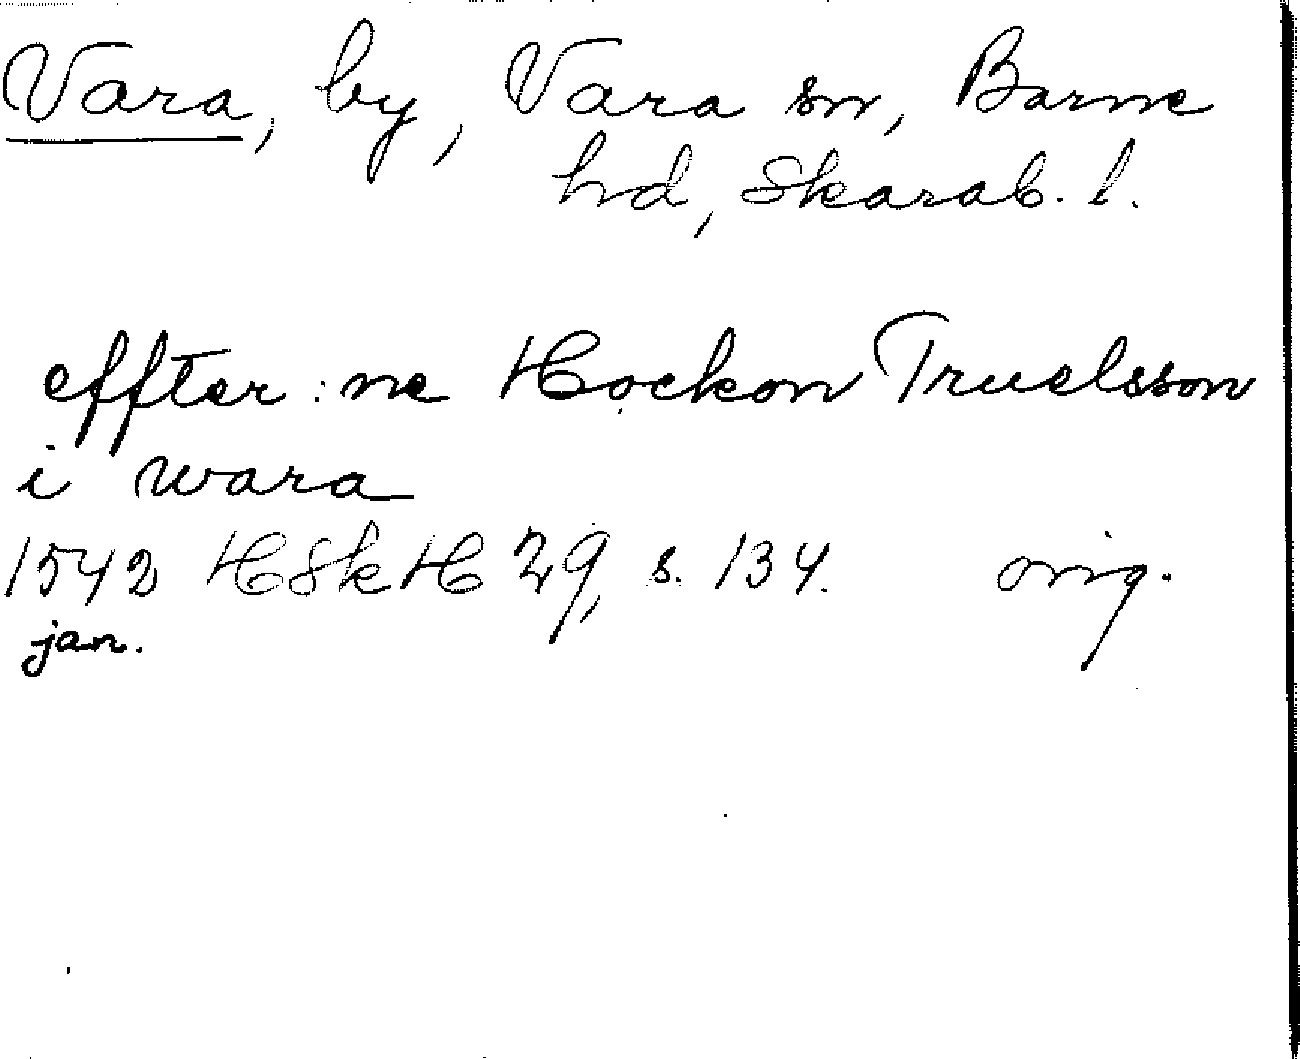 Vara, by, Vara sn, Barne
hd, Skarab. l.
effter : ne Hockon Truelsson
i wara
1542 HSkH 29, s. 134. orig.
jan.